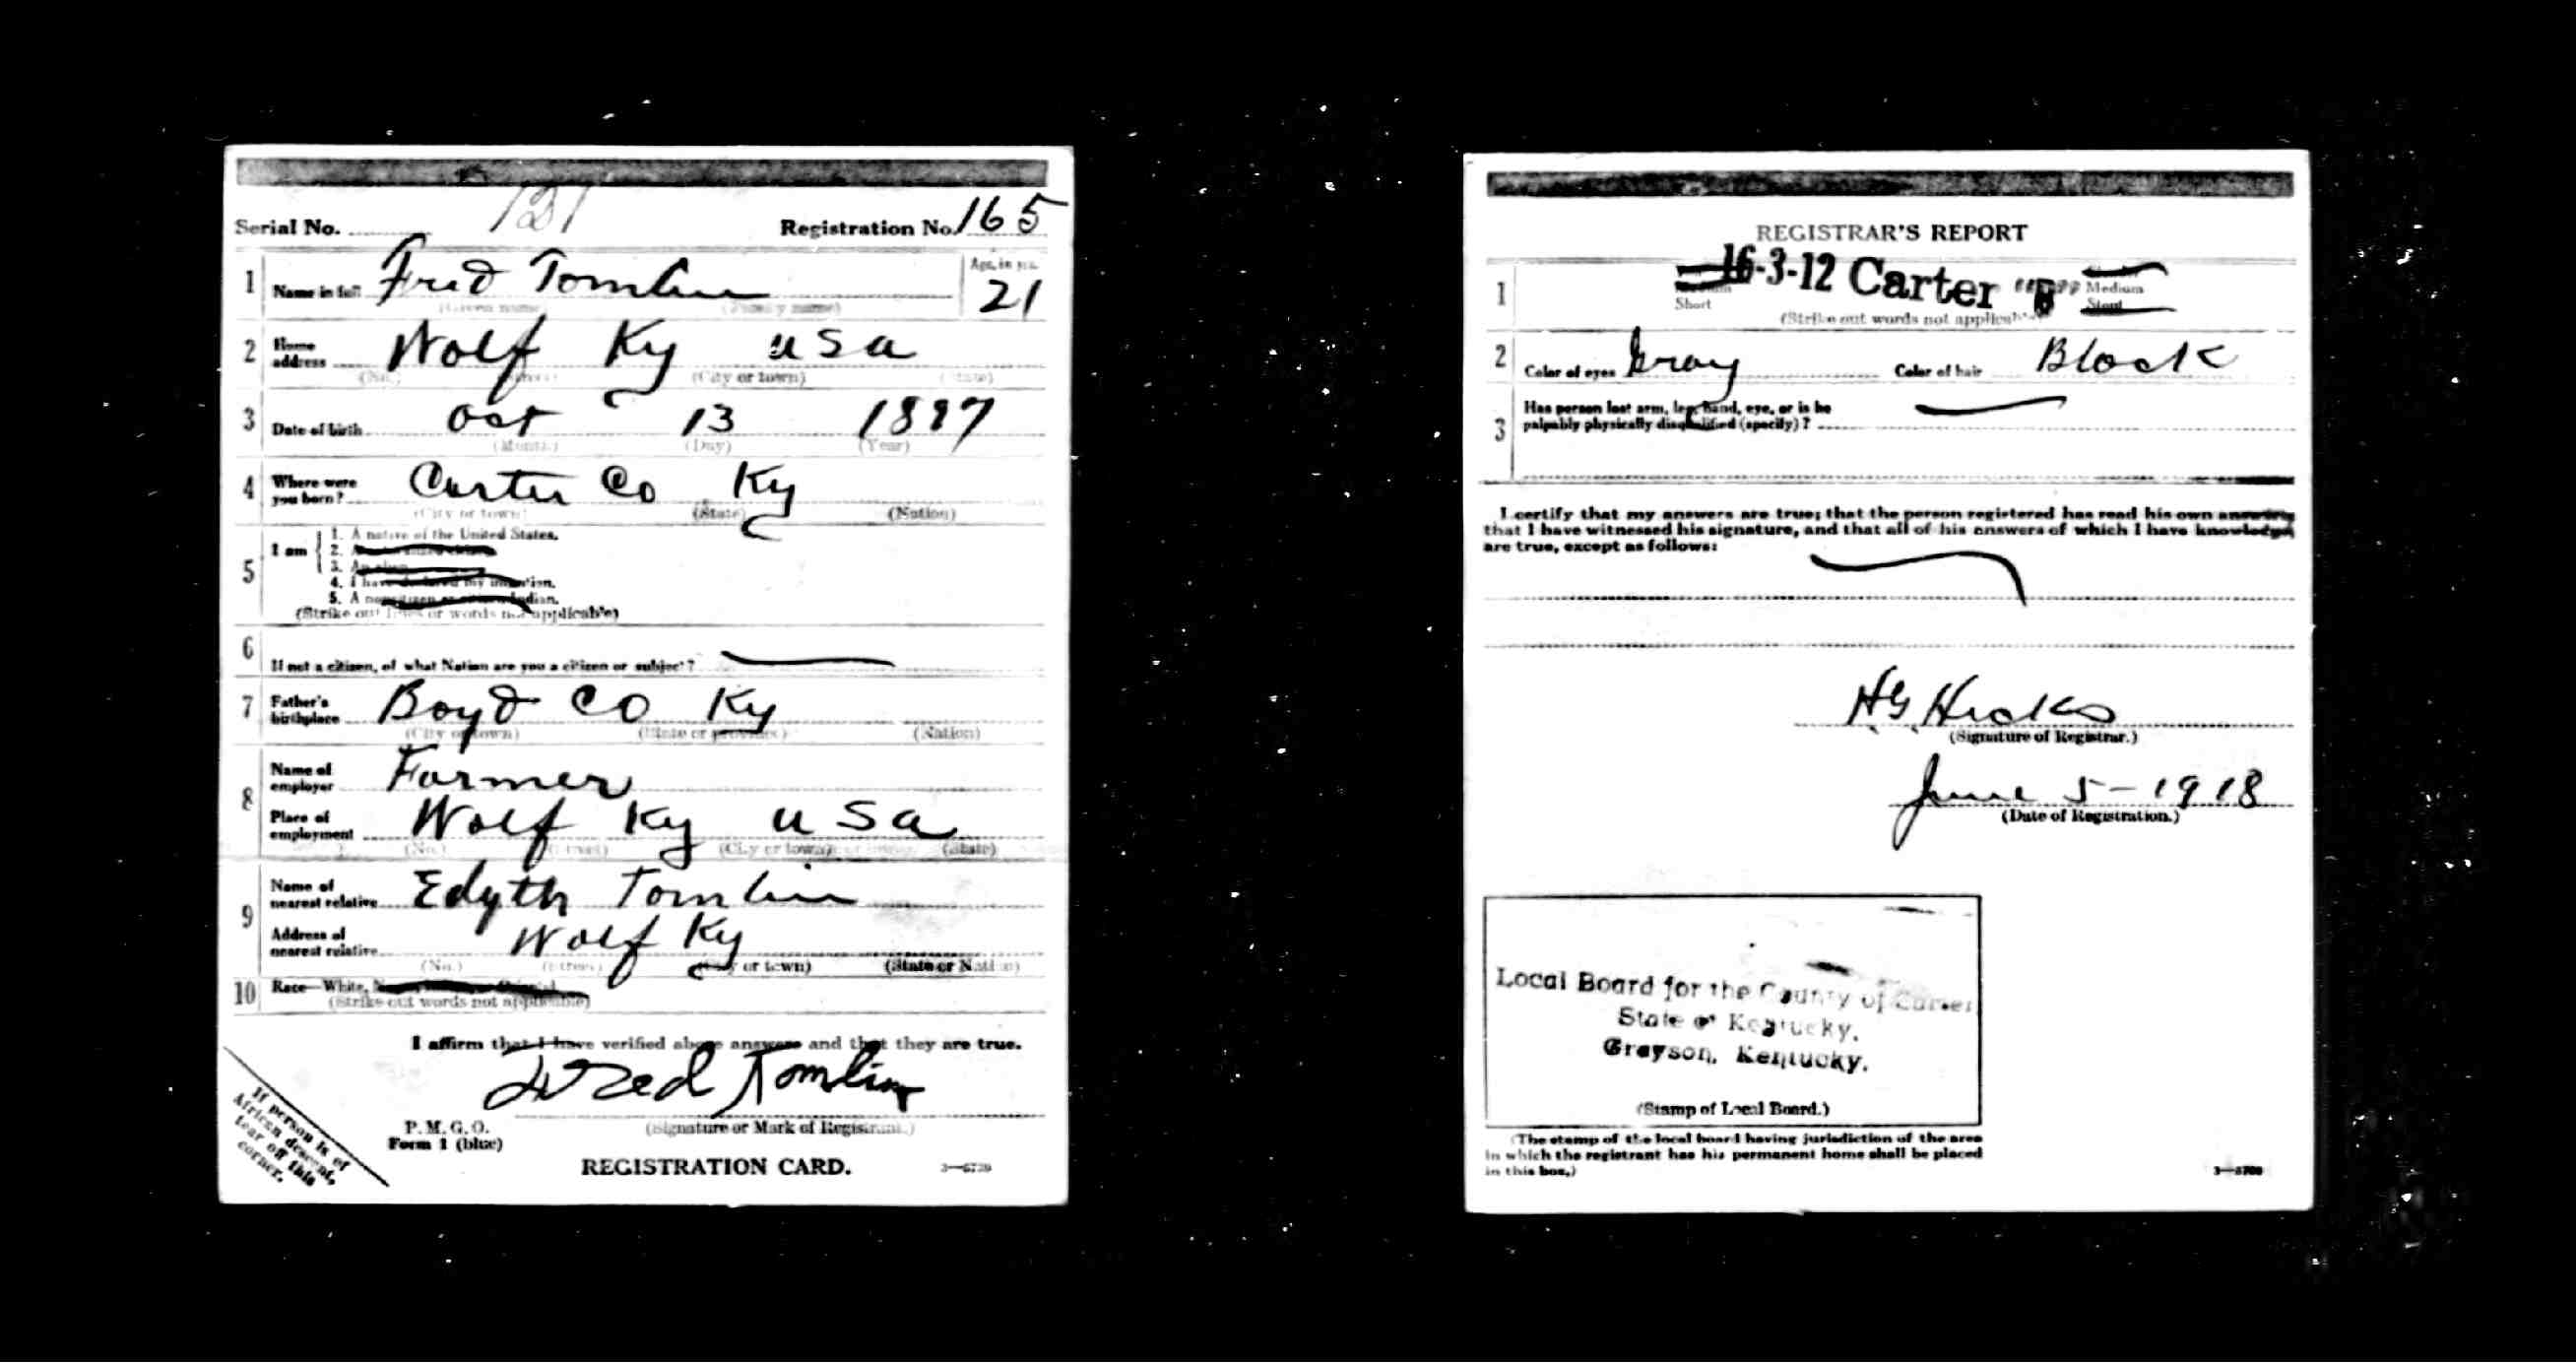 Serial No. 131 Registration No. 165
1 Name in full Fred Tomlin Age, in yrs. 21
(Given name) (Family name)
2 Home address Wolf Ky USA
(No.) (Street) (City or town) (State)
3 Date of birth Oct 13 1897
(Month) (Day) (Year)
4 Where were you born? Carter Co Ky
(City or town) (State) (Nation)
5 I am
1. A native of the United States.
2. A
3. An alien
4. I have declared my intention.
5. A noncitizen Indian.
(Strike out lines or words not applicable)
6 If not a citizen, of what Nation are you a citizen or subject?
7 Father's birthplace Boyd Co Ky
(City or town) (State or province) (Nation)
8 Name of employer Farmer
Place of employment Wolf Ky USA
(No.) (Street) (City or town) (State)
9 Name of nearest relative Edyth Tomlin
Address of nearest relative Wolf Ky
(No.) (Street) (City or town) (State or Nation)
10 Race—White,
(Strike out words not applicable)
I affirm that I have verified above answers and that they are true.
Fred Tomlin
(Signature or Mark of Registrant.)
P. M. G. O.
Form 1 (blue)
REGISTRATION CARD.
If person is of
African descent,
tear off this
corner.
REGISTRAR'S REPORT
16-3-12 Carter "B"
1 Medium
Short
Medium
Stout
(Strike out words not applicable)
2 Color of eyes Gray Color of hair Black
3 Has person lost arm, leg, hand, eye, or is he
palpably physically disqualified (specify)?
I certify that my answers are true; that the person registered has read his own answers,
that I have witnessed his signature, and that all of his answers of which I have knowledge
are true, except as follows:
HG Hicks
(Signature of Registrar.)
June 5-1918
(Date of Registration.)
Local Board for the County of Carter
State of Kentucky.
Grayson, Kentucky.
(Stamp of Local Board.)
(The stamp of the local board having jurisdiction of the area
in which the registrant has his permanent home shall be placed
in this box.)